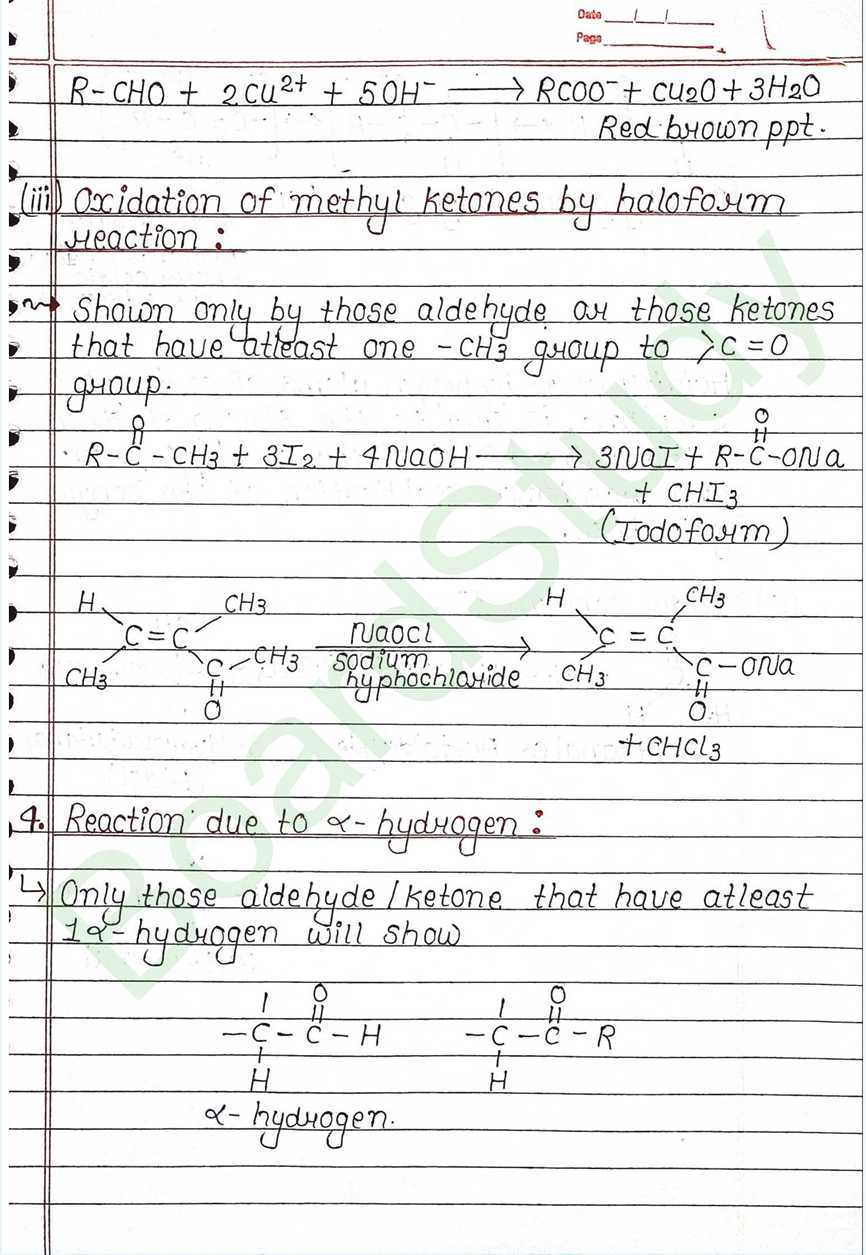 Date __/__/__
Page ______
R-CHO + 2Cu²⁺ + 5OH⁻ ⟶ RCOO⁻ + Cu₂O + 3H₂O
Red brown ppt.
(iii) Oxidation of methyl ketones by haloform
reaction :
Shown only by those aldehyde or those ketones
that have atleast one -CH₃ group to >C=O
group.
O O
R-C-CH₃ + 3I₂ + 4NaOH ⟶ 3NaI + R-C-ONa
+ CHI₃
(Iodoform)
H CH₃ H CH₃
C=C NaOCl C=C
CH₃ C-CH₃ sodium CH₃ C-ONa
hyphochloride
O O
+CHCl₃
4. Reaction due to α-hydrogen :
↳ Only those aldehyde/ketone that have atleast
1α-hydrogen will show
O O
-C-C-H -C-C-R
H H
α-hydrogen.
BoardStudy